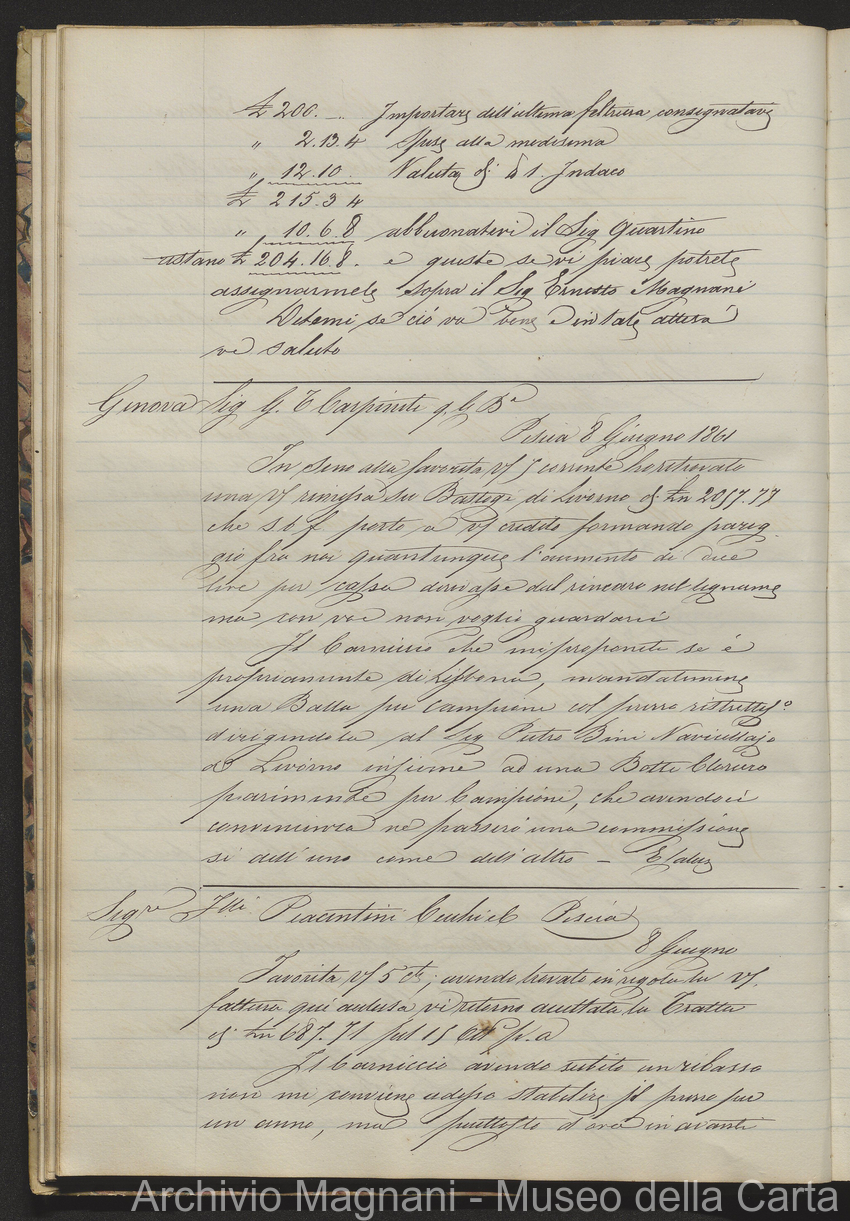 £ 200. -.. Importare dell'ultima fattura consegnatavi
" 2.13.4 Spese alla medesima
" 12.10. Valuta di ℔ 1. Indaco
£ 215.3 4
" 10.6.8 abbuonatevi il Sig Quartino
restano £ 204.16.8. e queste se vi piace potrete
assegnarmele sopra il Sig Ernesto Magnani
Ditemi se ciò va bene e in tale attesa
vi saluto
Genova Sig G. T Carpineti q. G Ba
Pescia 8 Giugno 1861
In seno alla favorita vs/ 7 corrente ho ritrovato
una vs/ rimessa su Bastogi di Livorno di Ln 2057.77
che s.b.f. porto a vs/ credito formando pareg
gio fra noi quantunque l'aumento di due
lire per cassa derivasse dal rincaro nel legname
ma con voi non voglio guardarci
Il Carniccio che mi proponete se è
propriamente di Lisbona, mandatemene
una Balla per campione col prezzo ristrettis.o
dirigendola al Sig Pietro Bini Navicellajo
di Livorno insieme ad una Botte Cloruro
parimente per Campione, che avendoci
convenienza ne passerò una commissione
si dell'uno come dell'altro - E salu
Sigre Flli Piacentini Cecchi e C Pescia
8 Giugno
Favorita vs/ 5 cte; avendo trovato in regola la vs/.
fattura quì acclusa vi ritorno accettata la Tratta
di Ln 687.71 pel 15 p.a
Il Carniccio avendo subito un ribasso
non mi conviene adesso stabilire il prezzo per
un anno, ma piuttosto d'ora in avanti
Archivio Magnani - Museo della Carta